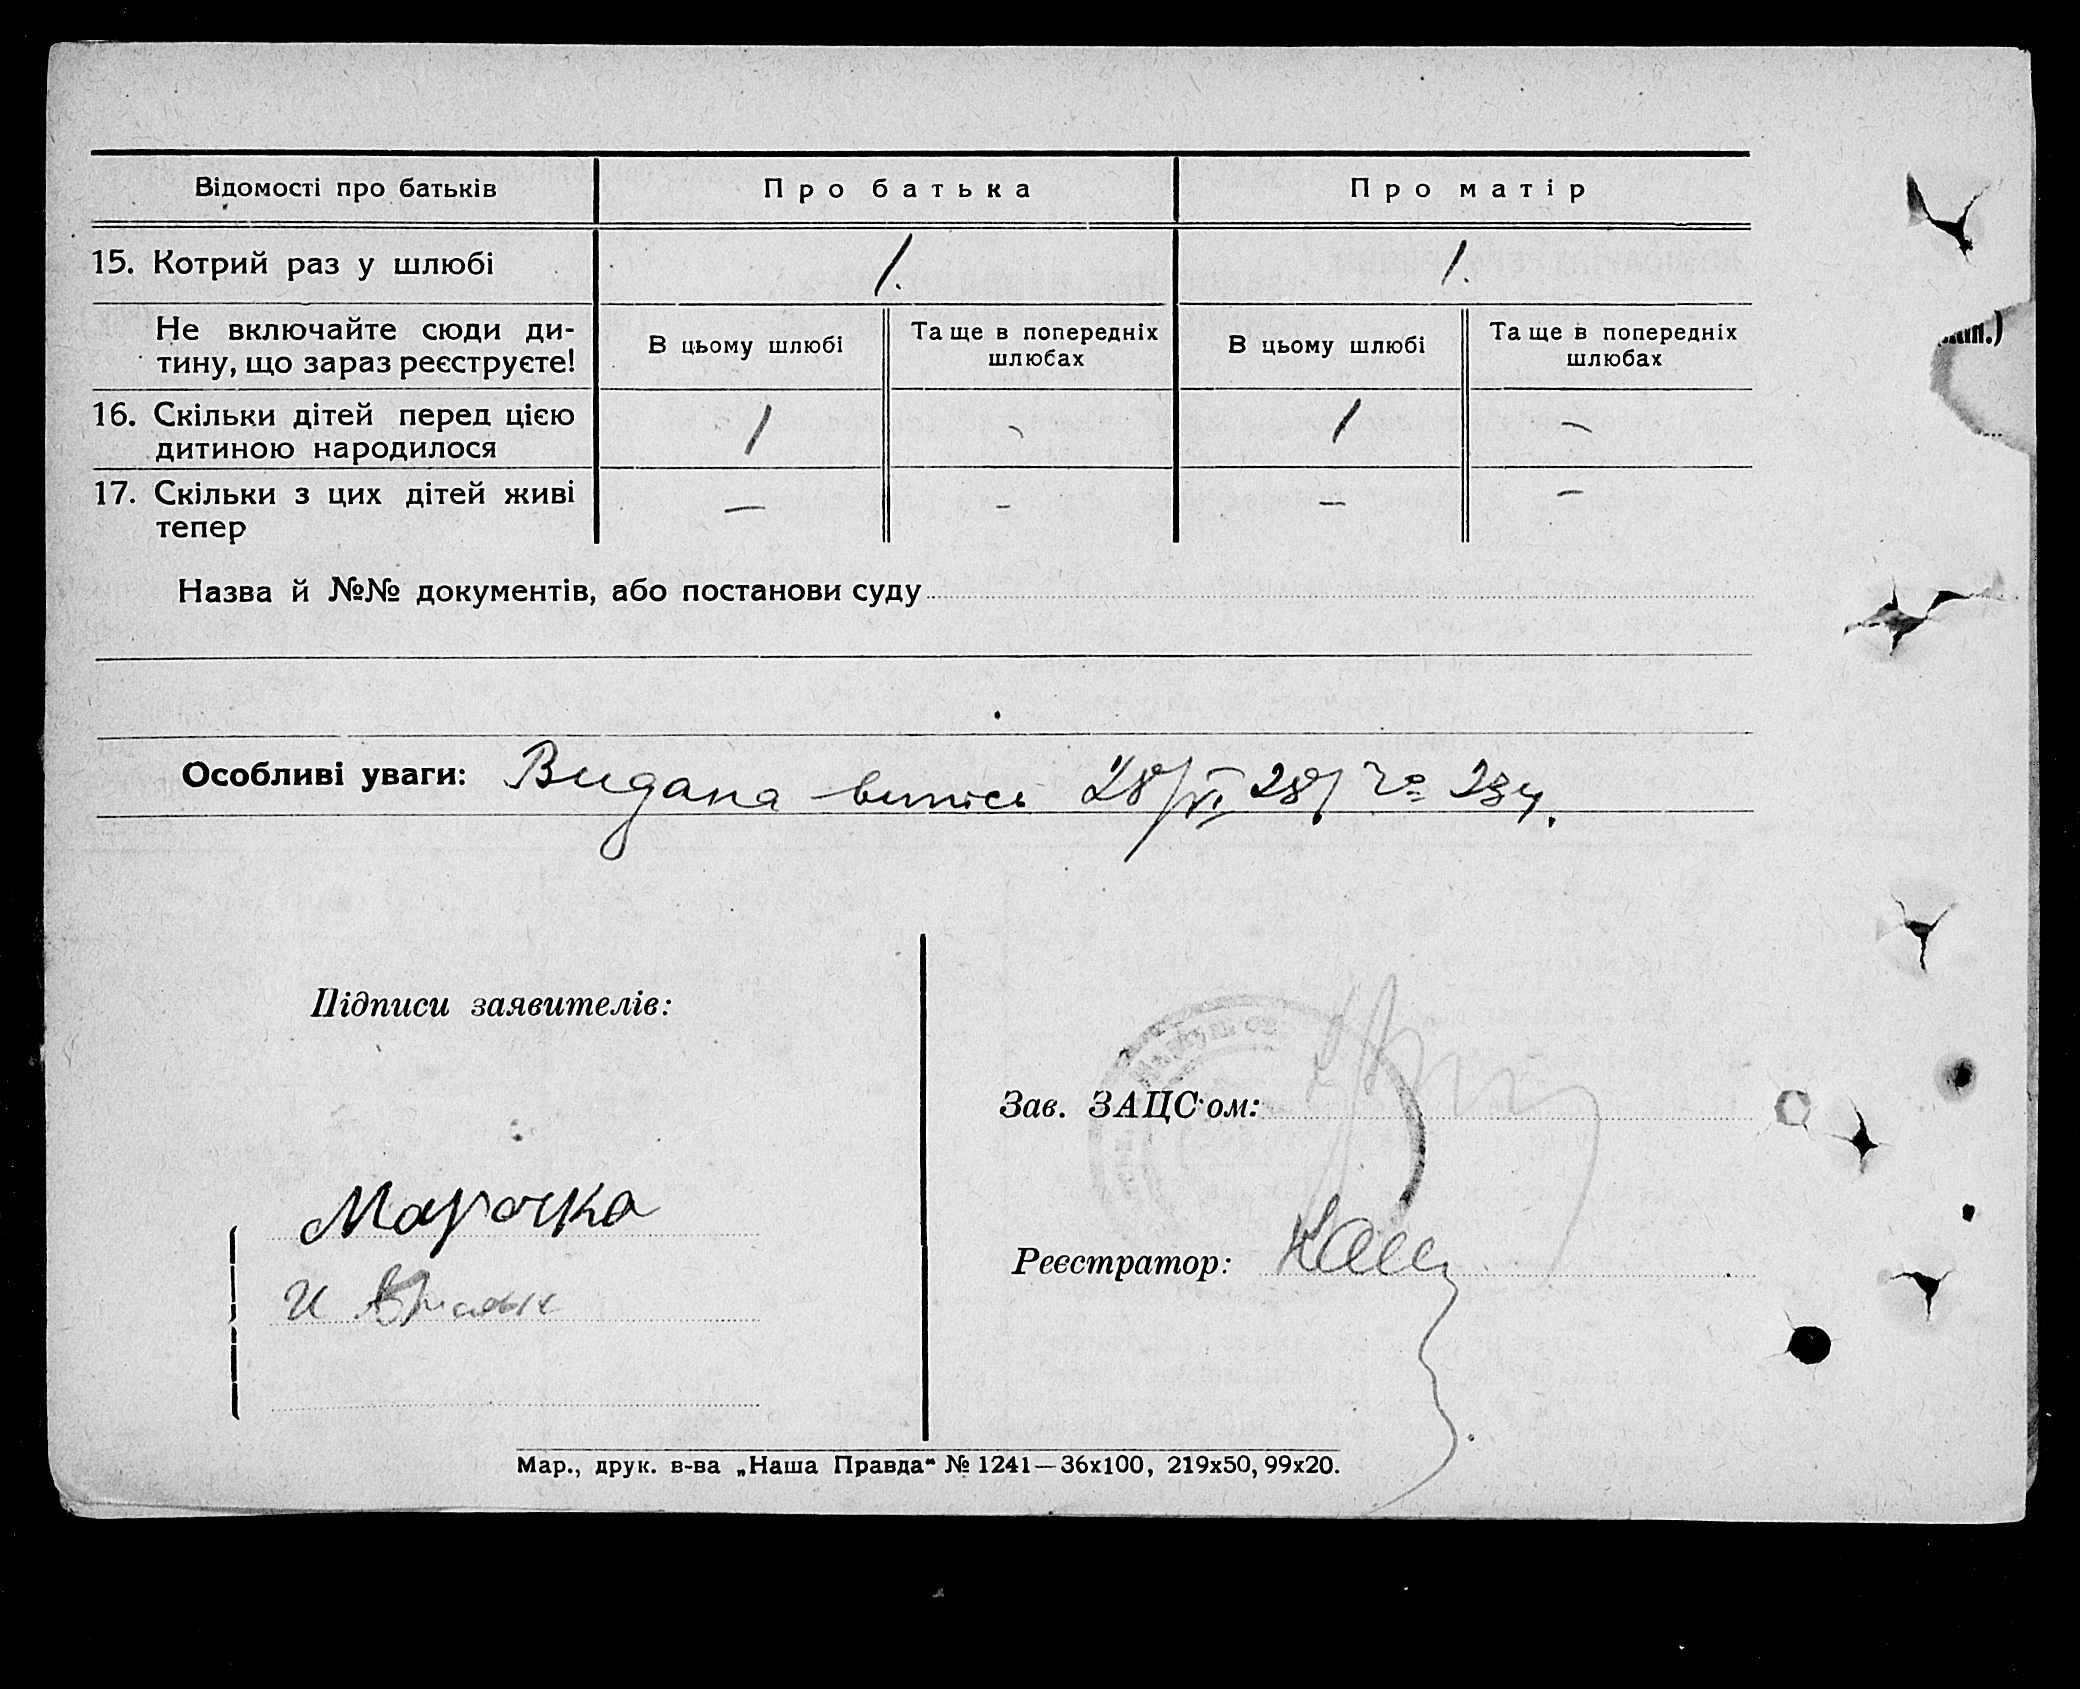 Відомості про батьків Про батька Про матір
15. Котрий раз у шлюбі 1. 1.
Не включайте сюди ди-
тину, що зараз реєструєте!
В цьому шлюбі
Та ще в попередніх
шлюбах
В цьому шлюбі
Та ще в попередніх
шлюбах
16. Скільки дітей перед цією
дитиною народилося
1 - 1 -
17. Скільки з цих дітей живі
тепер
- - - -
Назва й №№ документів, або постанови суду
Особливі уваги: Видана випись 28/VI 28
Підписи заявителів:
Марочка
Зав. ЗАЦС'ом:
Реєстратор:
Мар., друк. в-ва „Наша Правда" № 1241—36х100, 219х50, 99х20.